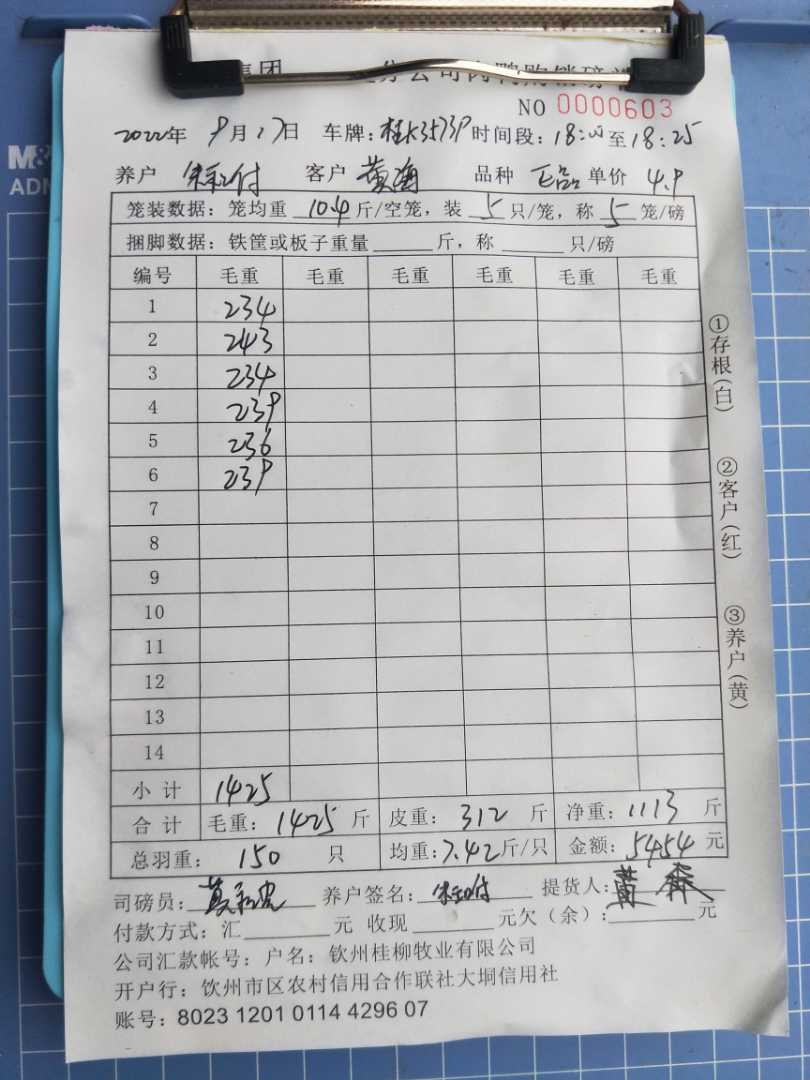 集团 分公司肉鸭购销磅
NO 0000603
2022年 9月17日 车牌:桂K3573P 时间段:18:00至18:25
养户 付 客户 黄海 品种 单价 4.9
笼装数据:笼均重 10.4 斤/空笼,装 5 只/笼,称 5 笼/磅
捆脚数据:铁筐或板子重量 斤,称 只/磅
编号 毛重 毛重 毛重 毛重 毛重 毛重
1 234
2 243
3 234
4 239
5 236
6 239
7
8
9
10
11
12
13
14
小计 1425
合计 毛重:1425斤 皮重:312斤 净重:1113斤
总羽重:150只 均重:7.42斤/只 金额:5454元
司磅员: 养户签名: 付 提货人:黄
付款方式:汇 元 收现 元欠(余): 元
公司汇款帐号:户名:钦州桂柳牧业有限公司
开户行:钦州市区农村信用合作联社大垌信用社
账号:8023 1201 0114 4296 07
①存根(白)
②客户(红)
③养户(黄)
M&
ADM